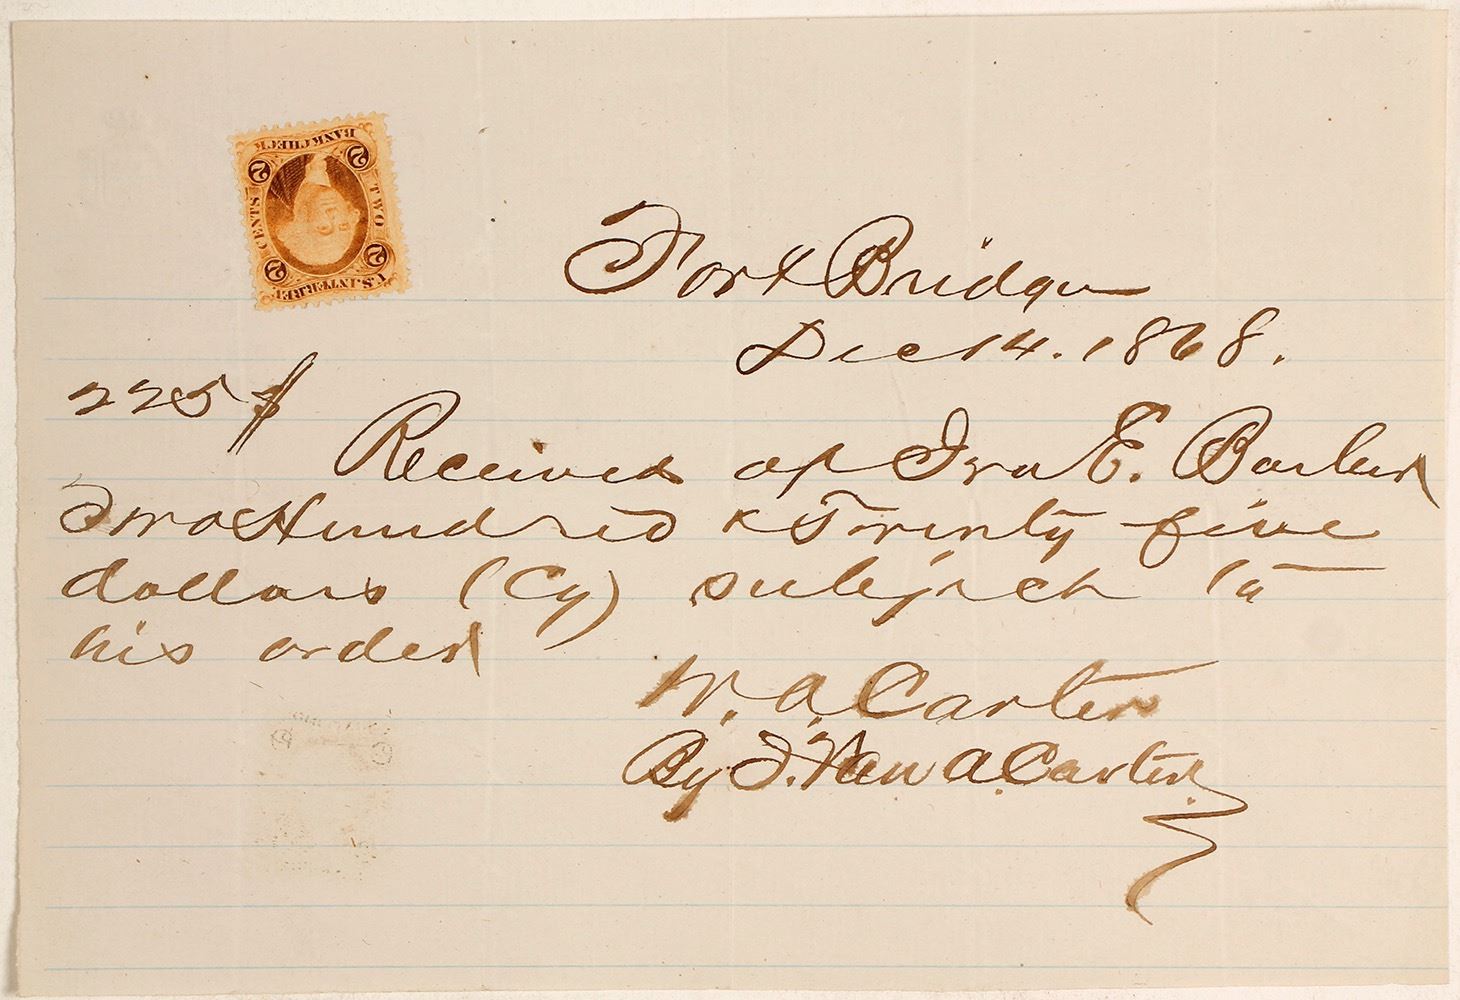 BANK CHECK
2 2
CENTS TWO
2 2
U.S. INTER. REV.
Fort Bridger
Dec 14. 1868.
225 $
Received of Ira E.
Two Hundred & Twenty five
dollars (Cy) subject to
his order
W. A. Carter
By I. Van A. Carter